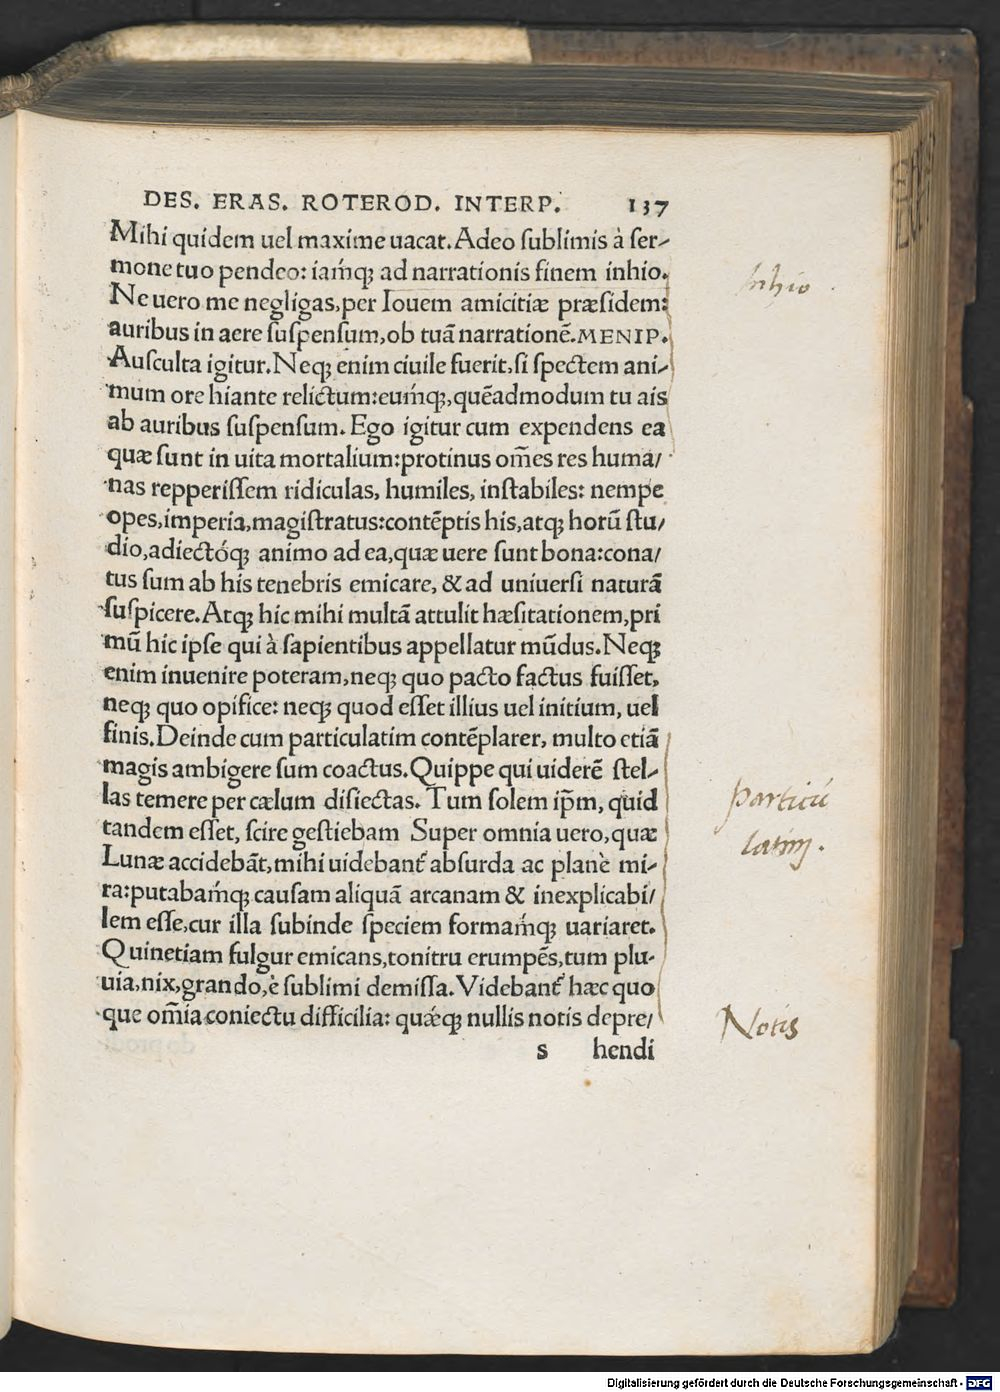 DES. ERAS. ROTEROD. INTERP. 137
Mihi quidem uel maxime uacat. Adeo sublimis à ser-
mone tuo pendeo: iamq́; ad narrationis finem inhio.
Inhio.
Ne uero me negligas, per Iouem amicitiæ præsidem:
auribus in aere suspensum, ob tuã narrationẽ. MENIP.
Ausculta igitur. Neq; enim ciuile fuerit, si spectem ani-
mum ore hiante relictum: eumq́;, quẽadmodum tu ais
ab auribus suspensum. Ego igitur cum expendens ea
quæ sunt in uita mortalium: protinus om̃es res huma/
nas repperissem ridiculas, humiles, instabiles: nempe
opes, imperia, magistratus: contẽptis his, atq; horũ stu/
dio, adiectóq; animo ad ea, quæ uere sunt bona: cona/
tus sum ab his tenebris emicare, & ad uniuersi naturã
suspicere. Atq; hic mihi multã attulit hæsitationem, pri
mũ hic ipse qui à sapientibus appellatur mũdus. Neq;
enim inuenire poteram, neq; quo pacto factus fuisset,
neq; quo opifice: neq; quod esset illius uel initium, uel
finis. Deinde cum particulatim contẽplarer, multo etiã
magis ambigere sum coactus. Quippe qui uiderẽ stel-
las temere per cælum disiectas. Tum solem ip̃m, quid
particu
latim.
tandem esset, scire gestiebam Super omnia uero, quæ
Lunæ accidebãt, mihi uidebant᷑ absurda ac planè mi-
ra: putabamq́; causam aliquã arcanam & inexplicabi/
lem esse, cur illa subinde speciem formamq́; uariaret.
Quinetiam fulgur emicans, tonitru erumpẽs, tum plu-
uia, nix, grando, è sublimi demissa. Videbant᷑ hæc quo
que om̃ia coniectu difficilia: quǽq; nullis notis depre/
Notis
s hendi
Digitalisierung gefördert durch die Deutsche Forschungsgemeinschaft - DFG